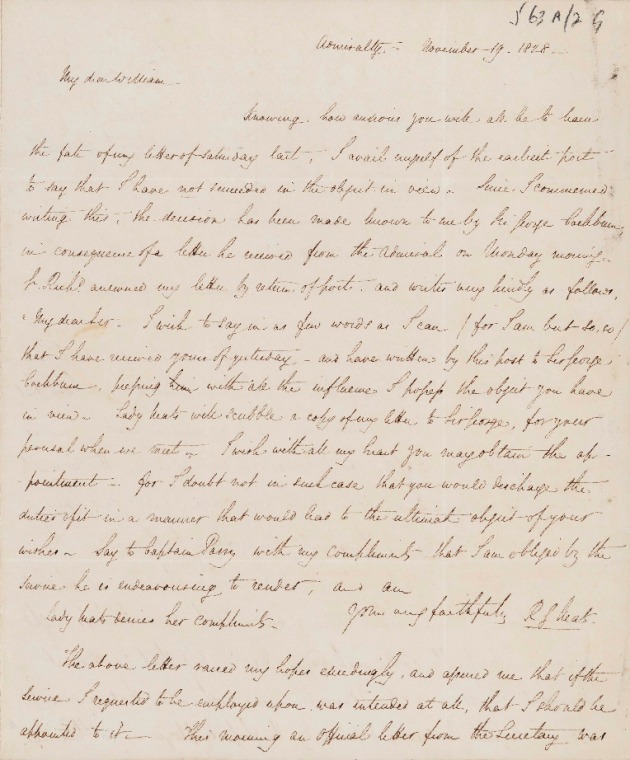 563 A/2 G
Admiralty. - November - 19. 1828 -
My dear William -
Knowing how anxious you will all be to learn
the fate of my letter of Saturday last, I avail myself of the earliest post
to say that I have not succeeded in the object in view - Since I commenced
writing this, the decision has been made known to me by Sir George Cockburn,
in consequence of a letter he received from the Admiral on Monday morning.
Sr. Richd. answered my letter by return of post, and writes very kindly as follows,
"My dear Sir - I wish to say in as few words as I can (for I am but so, so)
that I have received yours of yesterday - and have written by this post to Sir George
Cockburn, pressing him with all the influence I possess the object you have
in view - Lady Keats will scribble a copy of my letter to Sir George, for your
perusal when we meet - I wish with all my heart you may obtain the ap-
-pointment - for I doubt not in such case that you would discharge the
duties of it in a manner that would lead to the ultimate object of your
wishes - Say to Captain Parry with my compliments that I am obliged by the
service he is endeavouring to render, and am
Lady Keats desires her compliments - Yours very faithfully R G Keats -
The above letter raised my hopes exceedingly, and assured me that if the
service I requested to be employed upon was intended at all, that I should be
appointed to it - This morning an official letter from the Secretary was